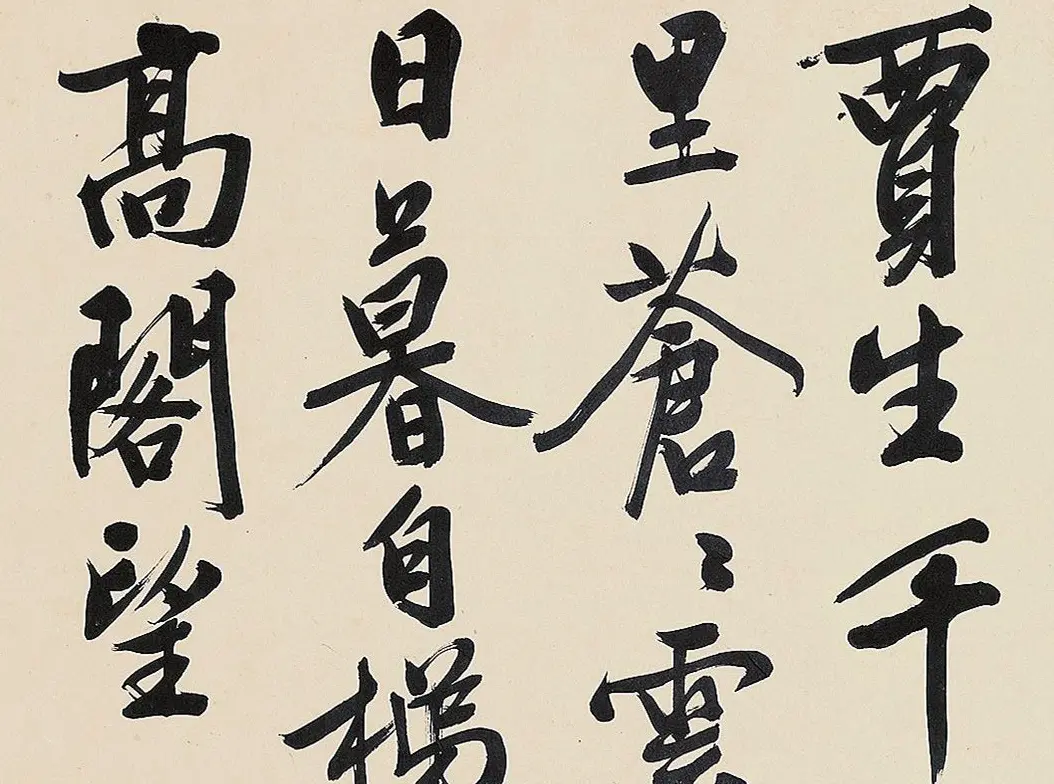 賈生千
里蒼〻雲
日暮自
高閣望